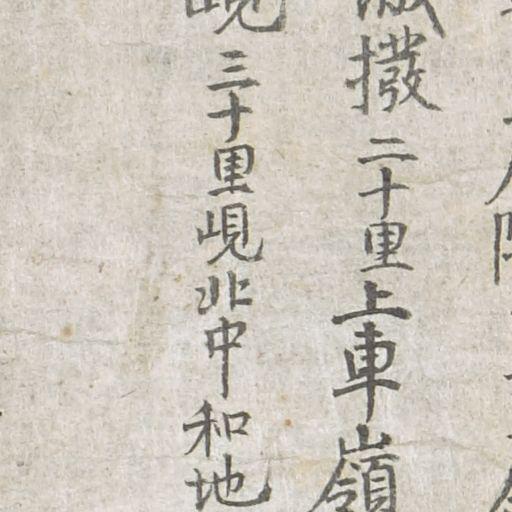 撥二十里上車嶺
峴三十里峴北中和地